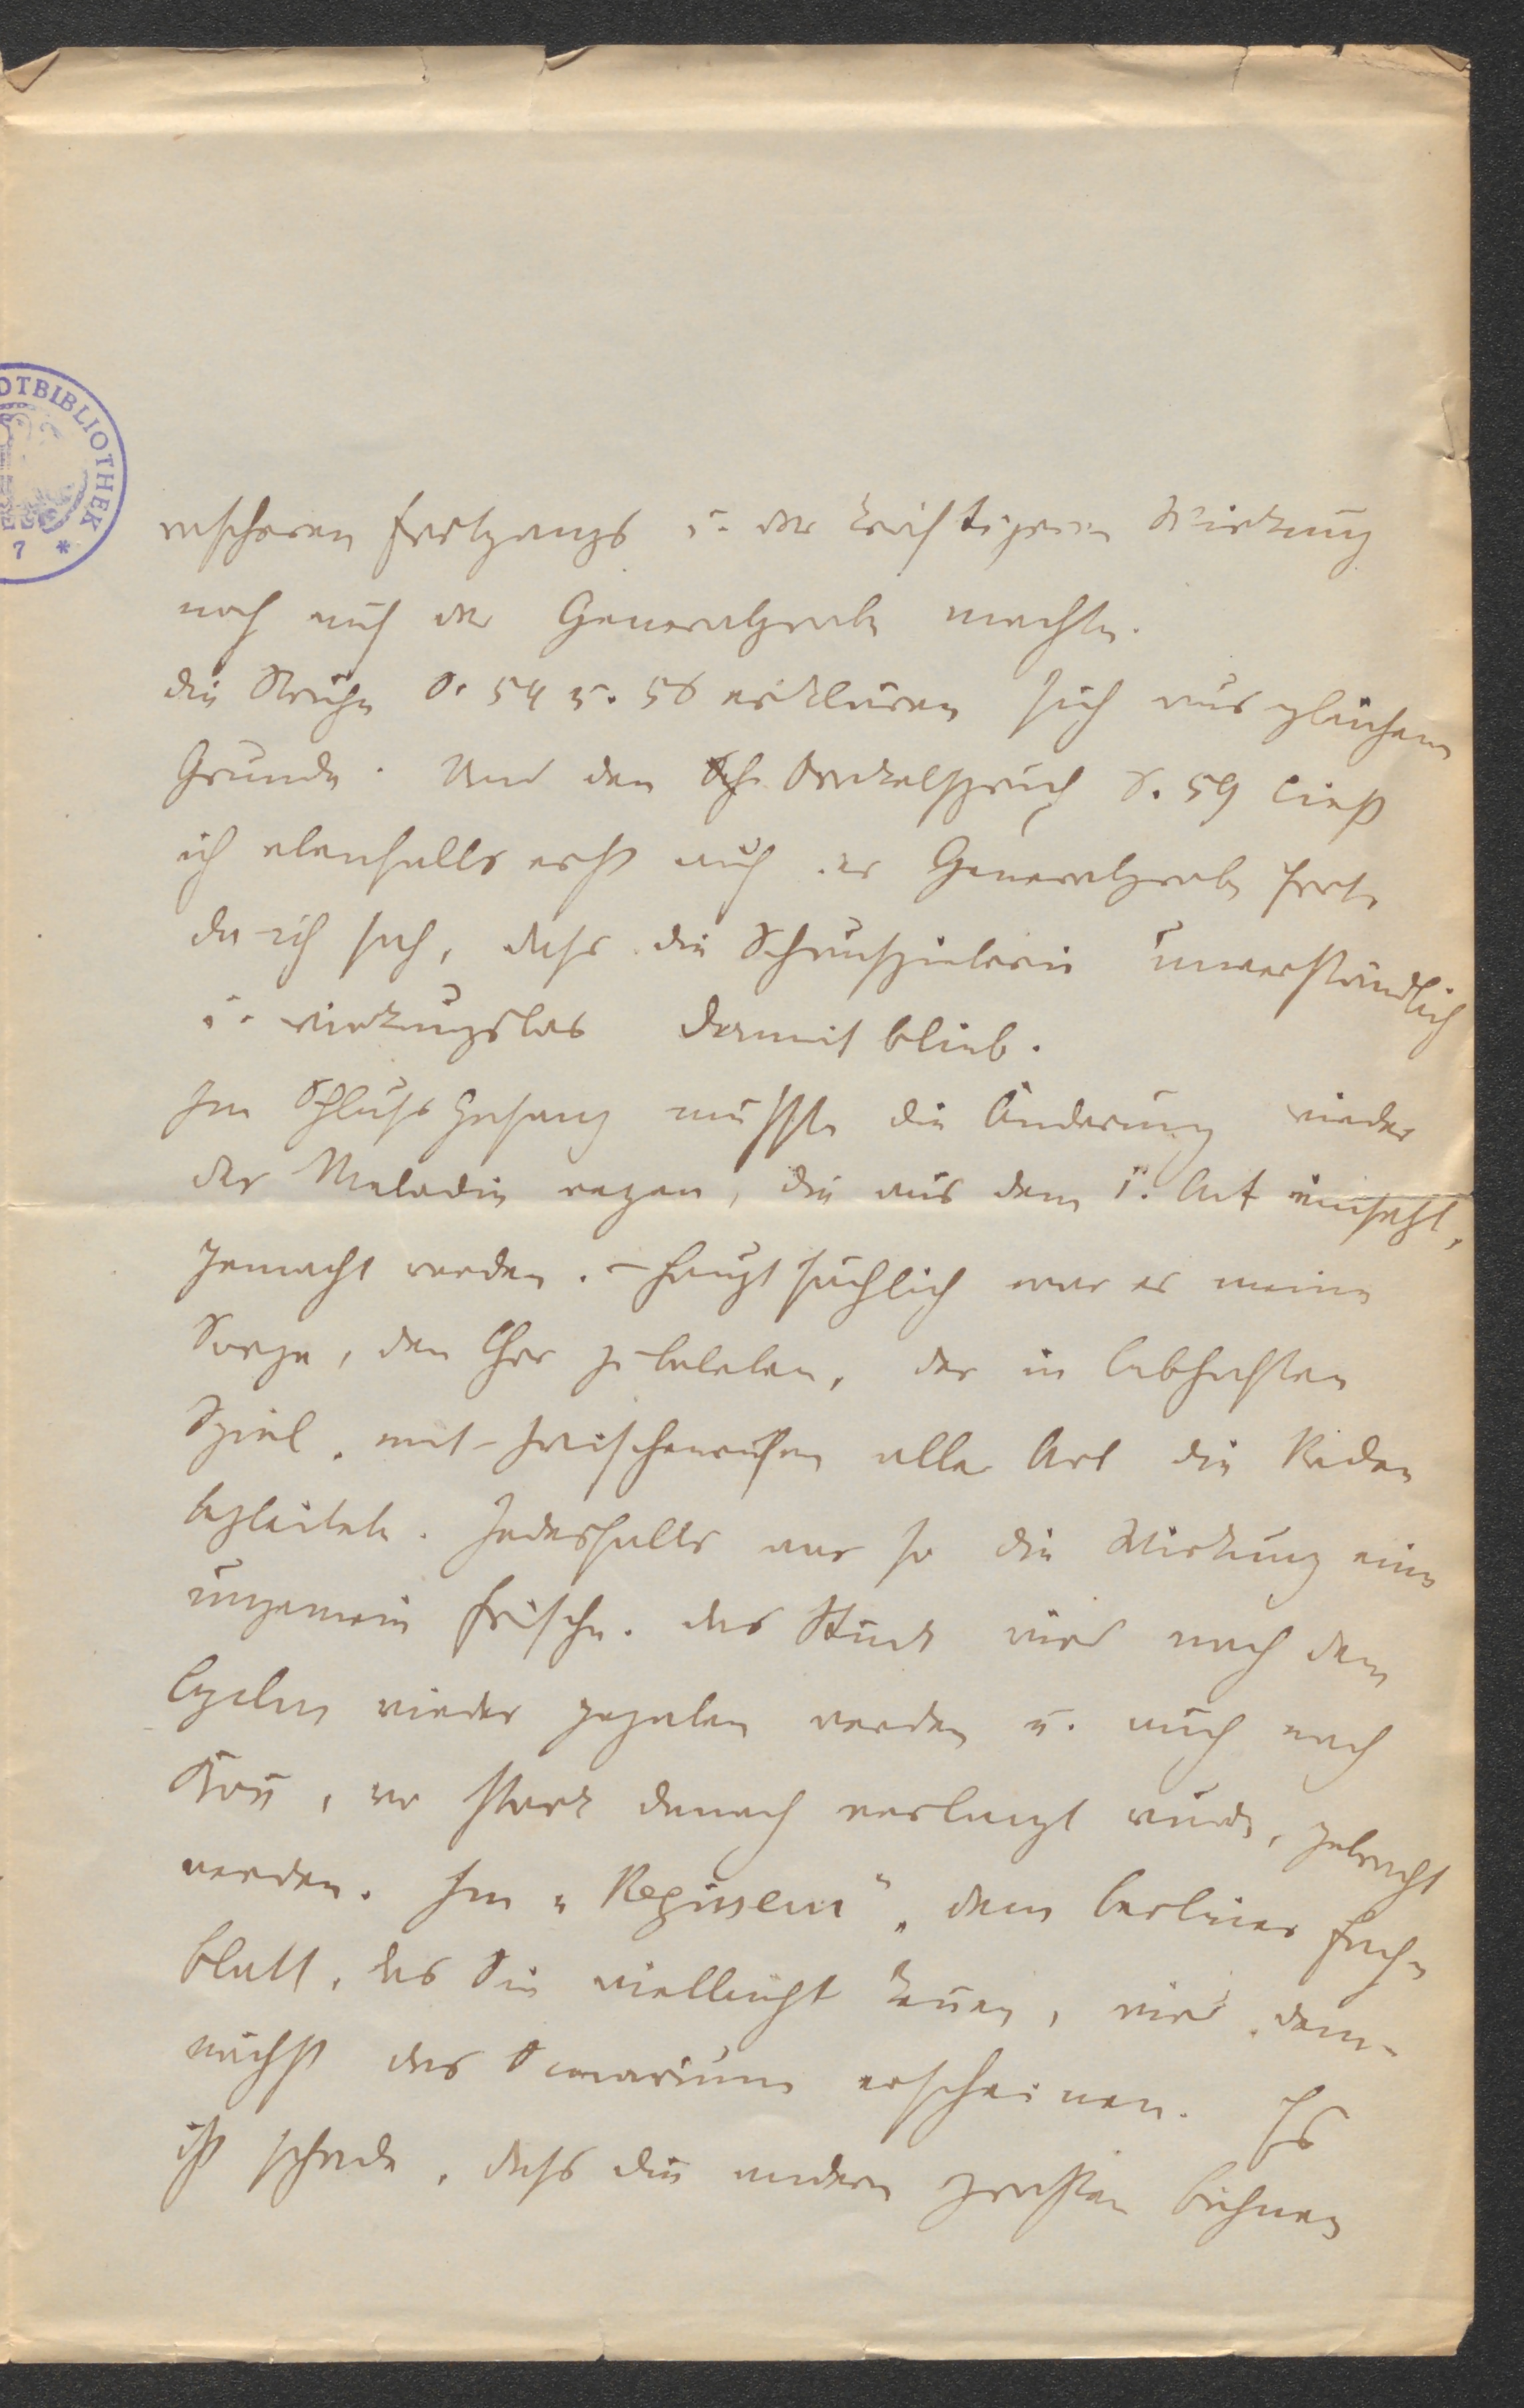 DTBIBLIOTHEK
7 *
rascheren Fortgangs u. der kräftigeren Wirkung
noch auf der Generalprobe machte.
Die Striche S. 54 u. 56 erklären sich aus gleichem
Grunde. Und den Orakelspruch S. 59 ließ
ich ebenfalls erst auf der Generalprobe fort,
da ich sah, dass die Schauspielerin unverständlich
u. wirkungslos damit blieb.
Im Schlussgesang musste die Änderung wieder
der Melodie wegen, die aus dem I. Act einsetzt,
gemacht werden. – Hauptsächlich war es meine
Sorge, den Chor zu beleben, der in lebhaftem
Spiel, mit Zwischenrufen aller Art die Reden
begleitete. Jedesfalls war so die Wirkung eine
ungemein frische. Das Stück wird nach dem
Cyclus wieder gegeben werden u. auch nach
, wo stark danach verlangt wurde, gebracht
werden. Im „Regisseur“, dem berliner Fach-
blatt, das Sie vielleicht kennen, wird dem-
nächst das Scenarium erscheinen. Es
ist schade, dass die andern grossen Bühnen